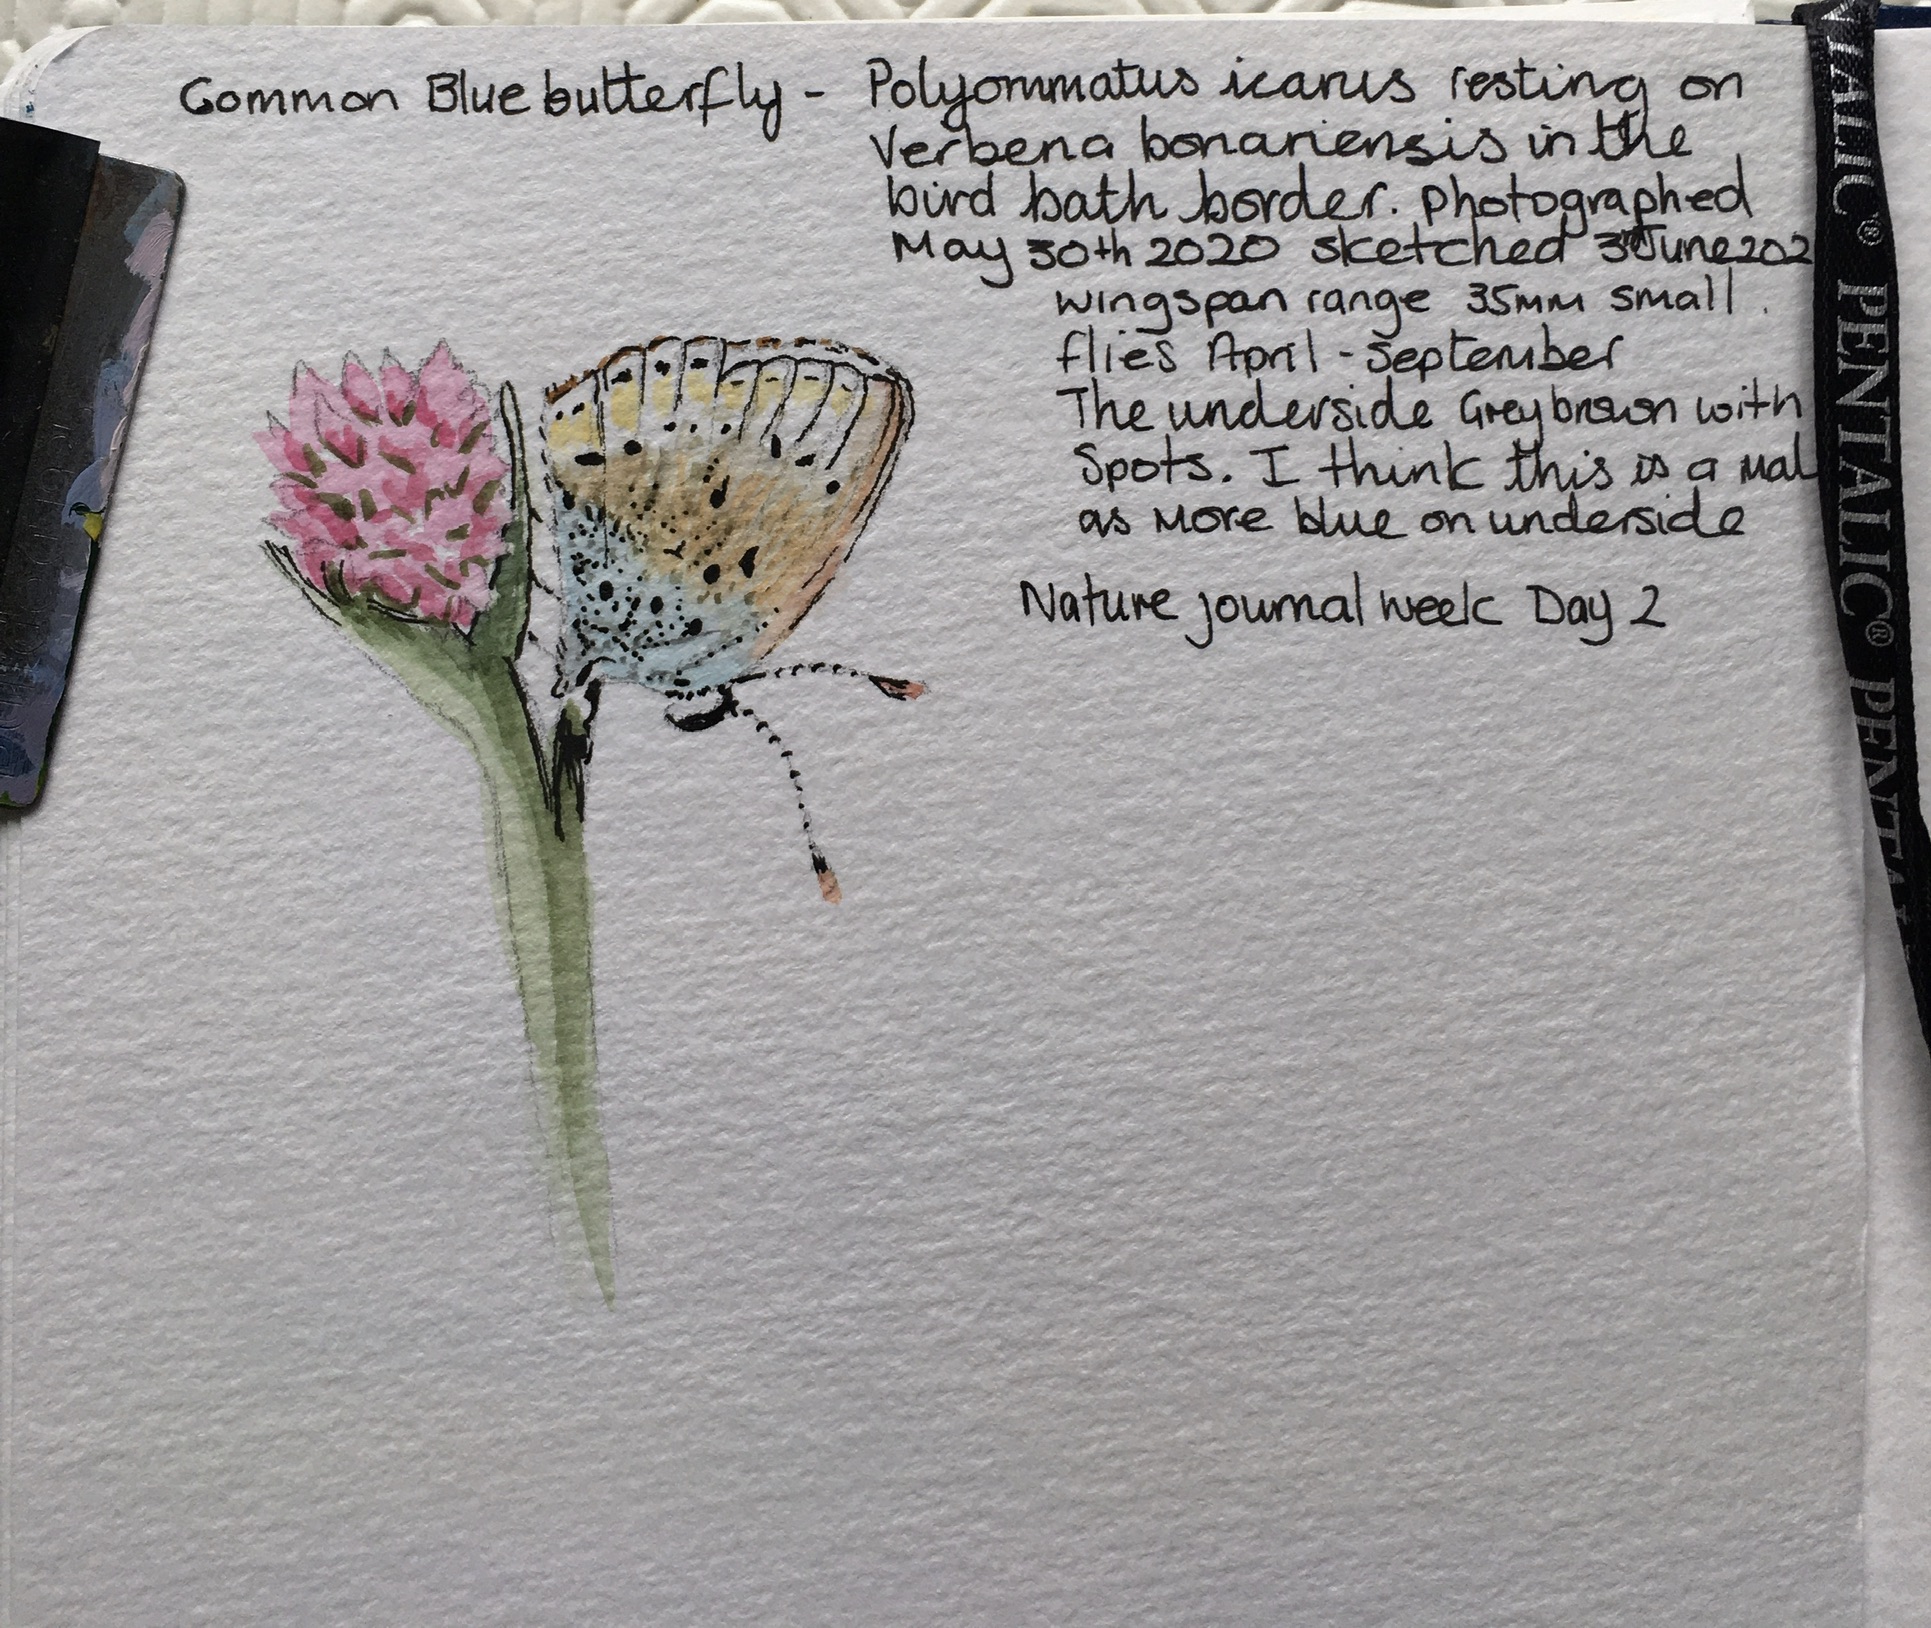 Common Blue butterfly - Polyommatus icarus resting on
Verbena bonariensis in the
bird bath border. Photographed
May 30th 2020 sketched 3rd June 202
wingspan range 35mm small.
flies April - September
The underside Grey brown with
Spots. I think this is a mal
as more blue on underside
Nature journal week Day 2
PENTALIC® PENTALIC® PENTA